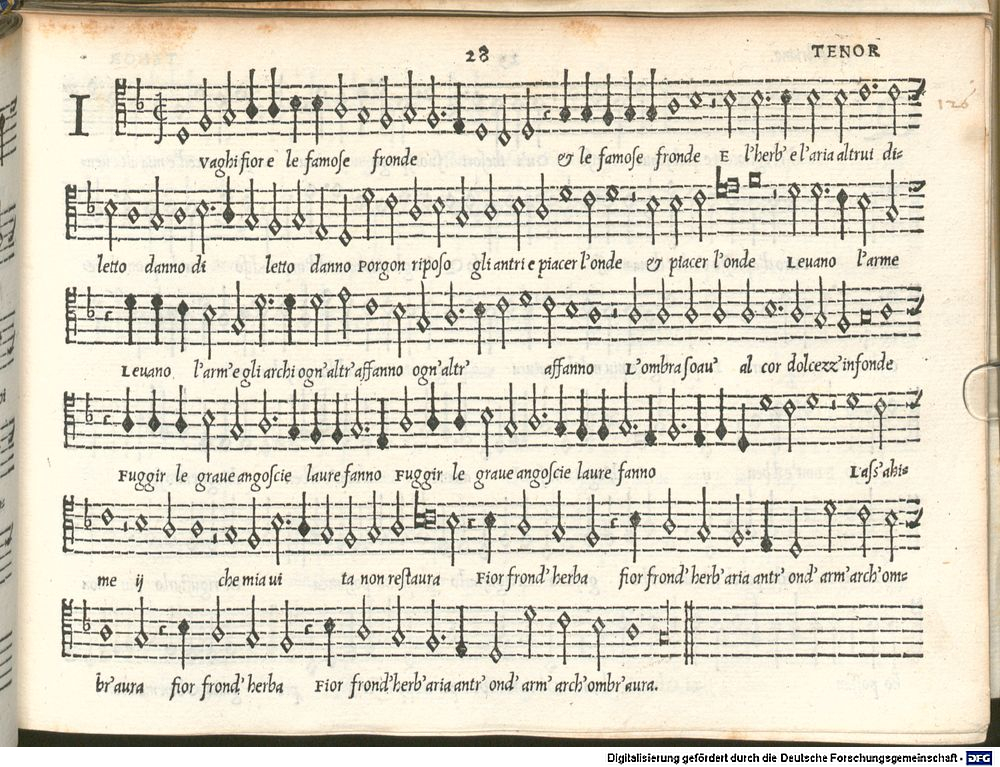 28
TENOR
126
I
Vaghi fior e le famose fronde & le famose fronde E l'herb' e l'aria altrui di=
letto danno di letto danno Porgon riposo gli antri e piacer l'onde & piacer l'onde Leuano l'arme
Leuano l'arm' e gli archi ogn'altr'affanno ogn'altr' affanno L'ombra soau' al cor dolcezz'infonde
Fuggir le graue angoscie laure fanno Fuggir le graue angoscie laure fanno L'ass'ahi=
me ij che mia ui ta non restaura Fior frond' herba fior frond' herb' aria antr' ond' arm' arch' om=
br'aura fior frond' herba Fior frond' herb' aria antr' ond' arm' arch' ombr' aura.
Digitalisierung gefördert durch die Deutsche Forschungsgemeinschaft - DFG